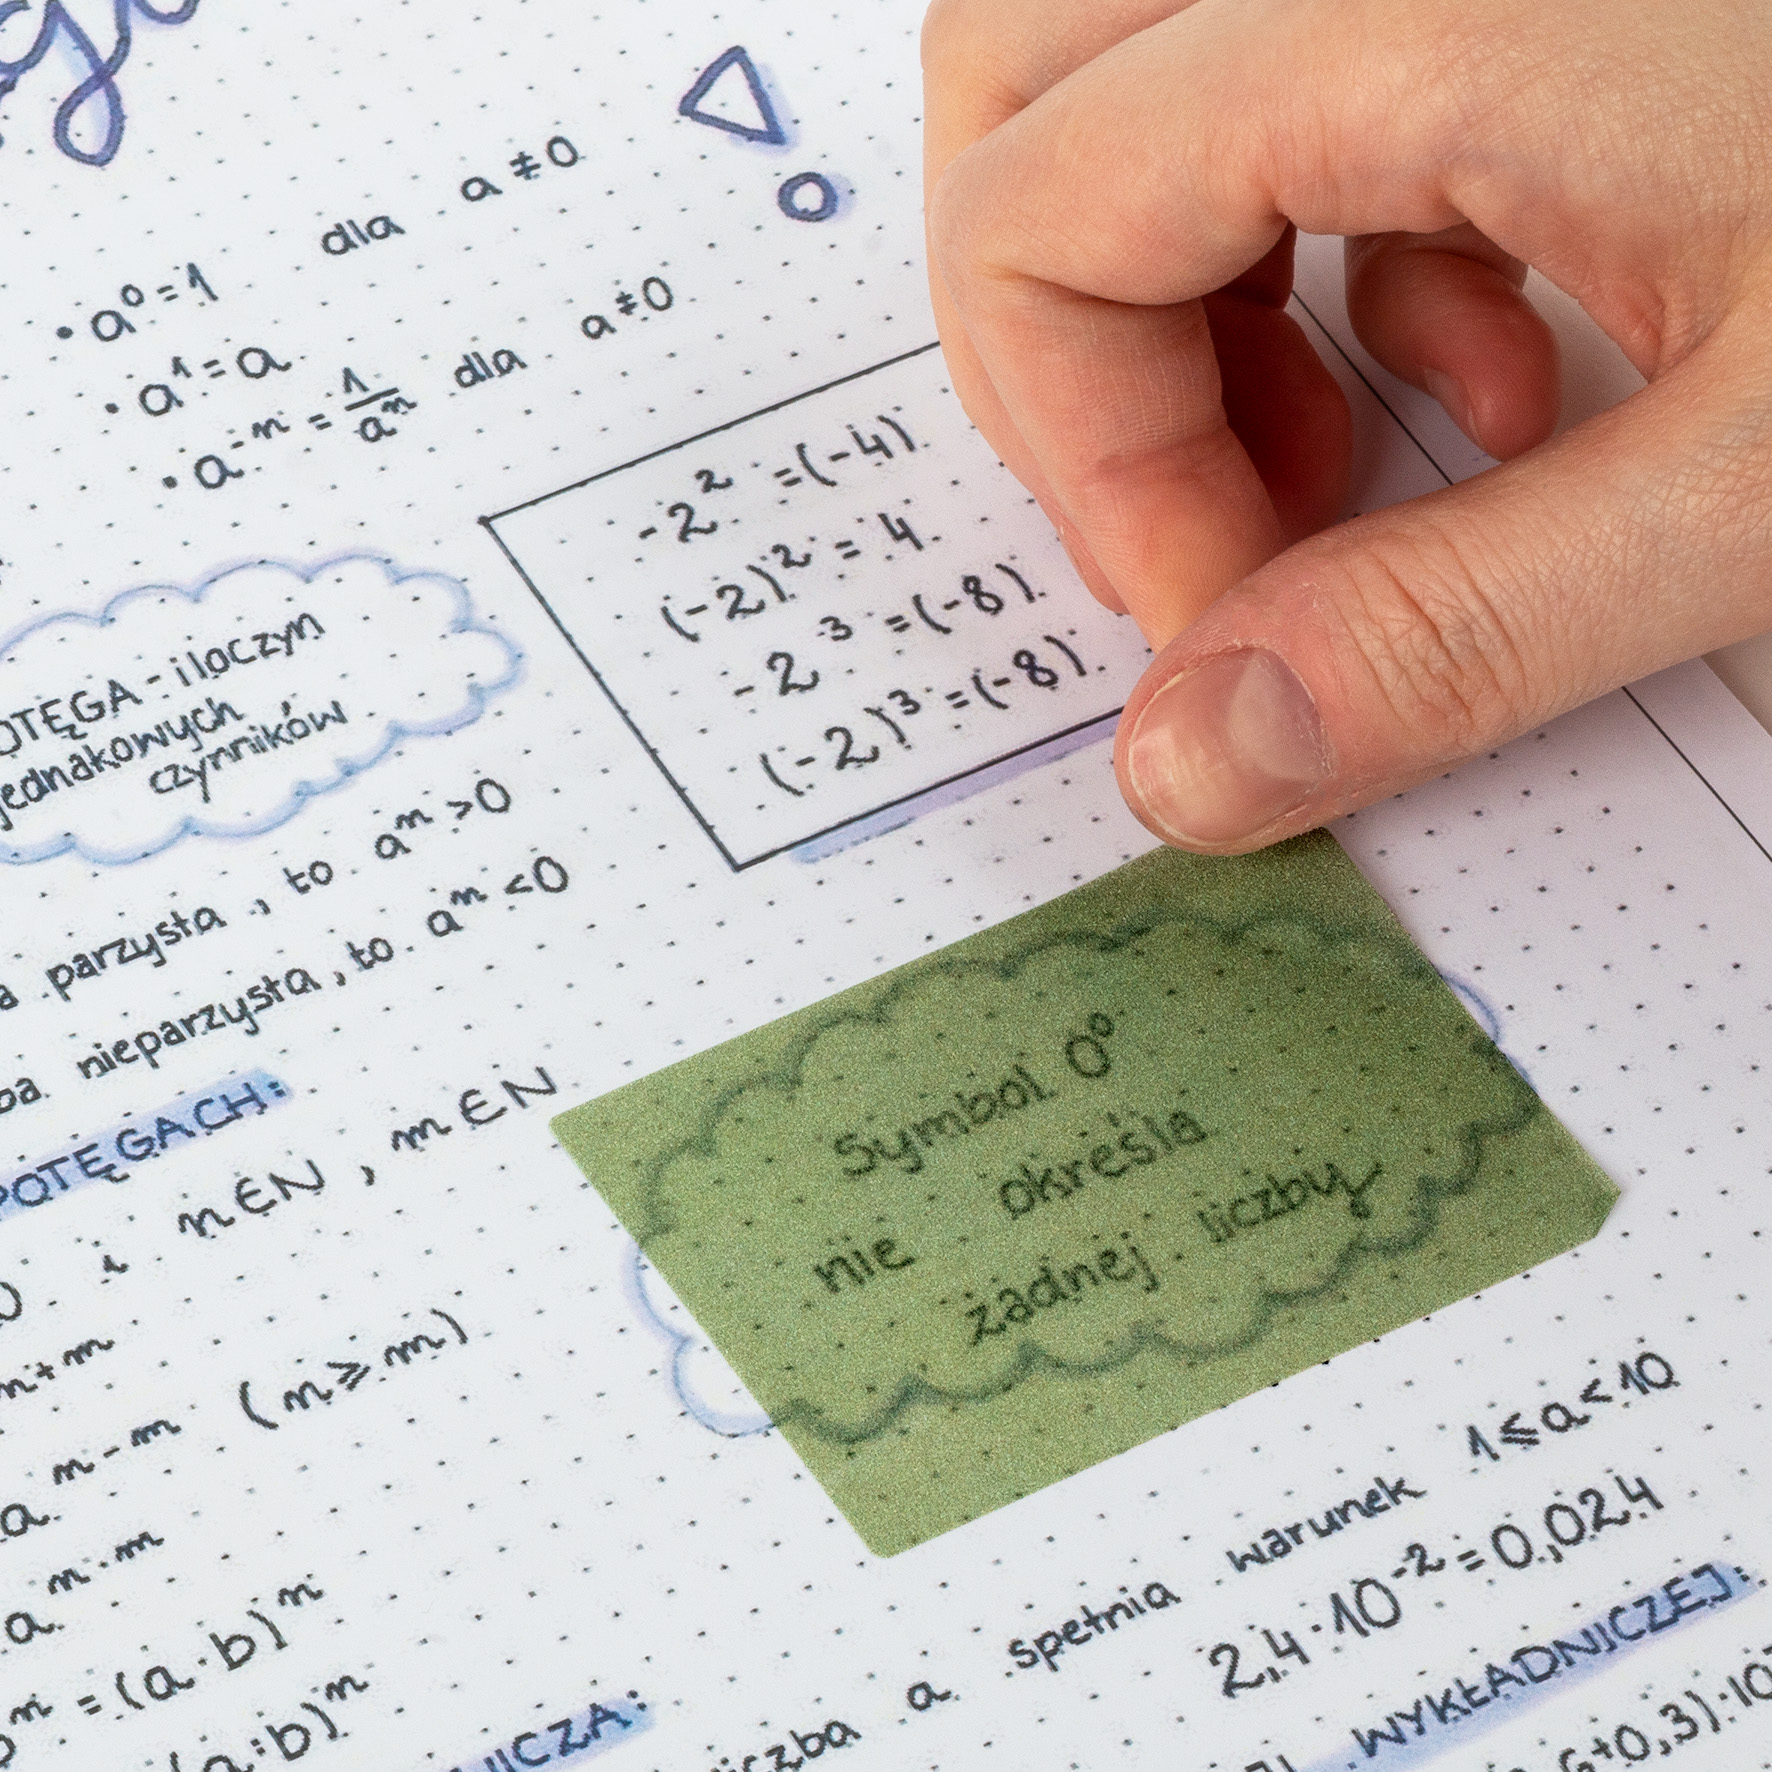 dla a ≠ 0
• a⁰ = 1
• a¹ = a
• a⁻ⁿ = 1/aⁿ dla a ≠ 0
-2² = (-4)
(-2)² = 4
-2³ = (-8)
(-2)³ = (-8)
POTĘGA - iloczyn
jednakowych
czynników
parzysta, to aⁿ > 0
nieparzysta, to aⁿ < 0
POTĘGACH:
i n ∈ N, m ∈ N
n+m
n-m (n ⩾ m)
a n·m
= (a · b)ⁿ
(a : b)ⁿ
Symbol 0⁰
nie określa
żadnej liczby
liczba a spełnia warunek 1 ⩽ a < 10
2,4 · 10⁻² = 0,024
WYKŁADNICZEJ:
+0,3) · 10